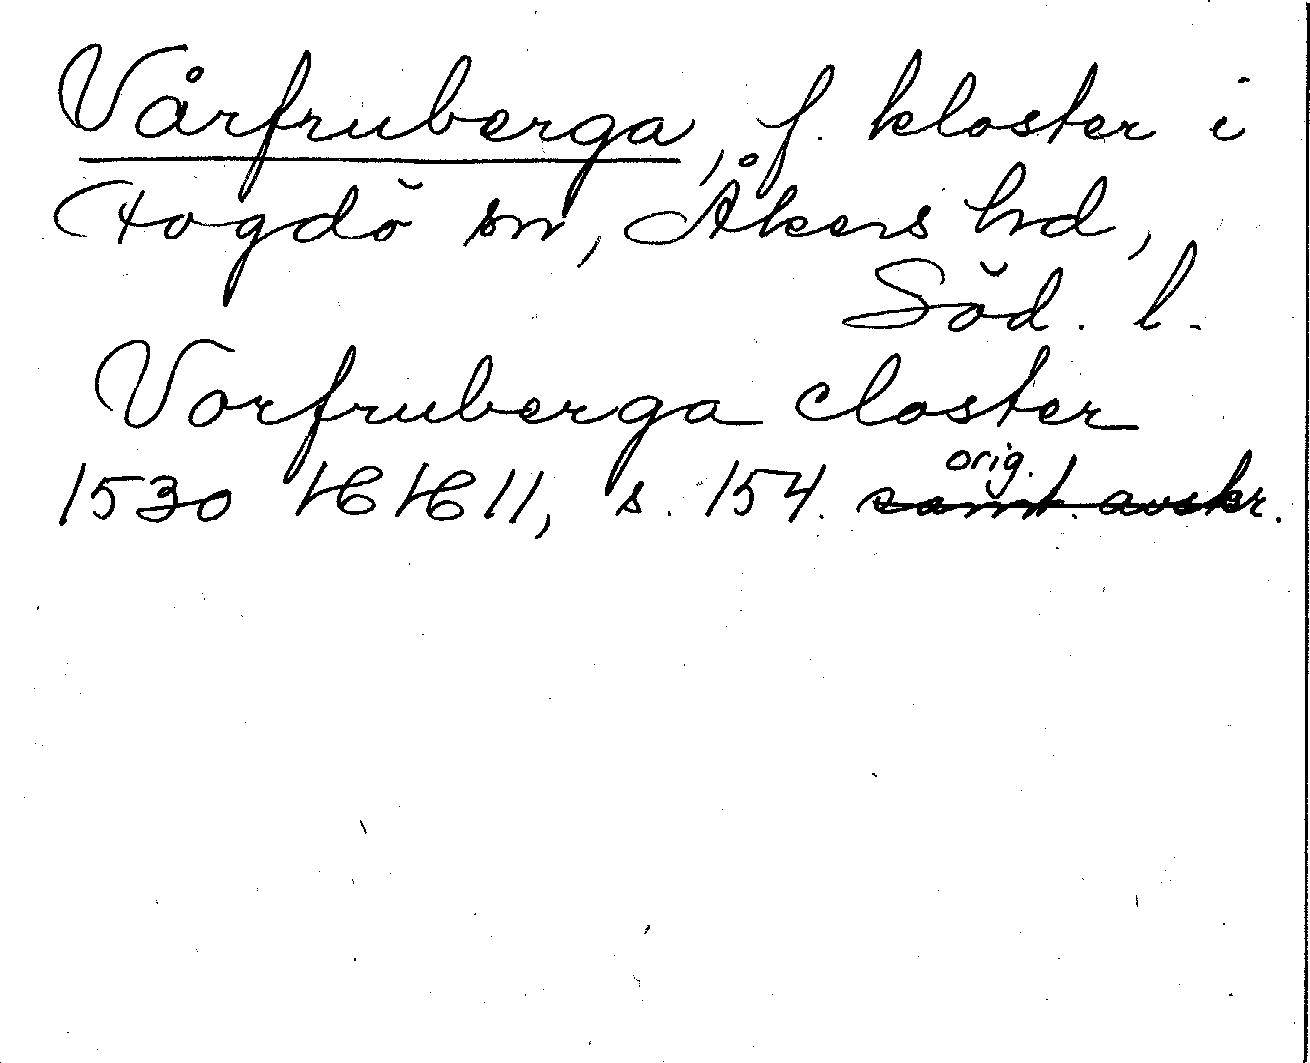 Vårfruberga, f. kloster i
Fogdö sn, Åkers hd,
Söd. l.
Vorfruberga closter
1530 HH 11, s. 154. orig. samt. avskr.